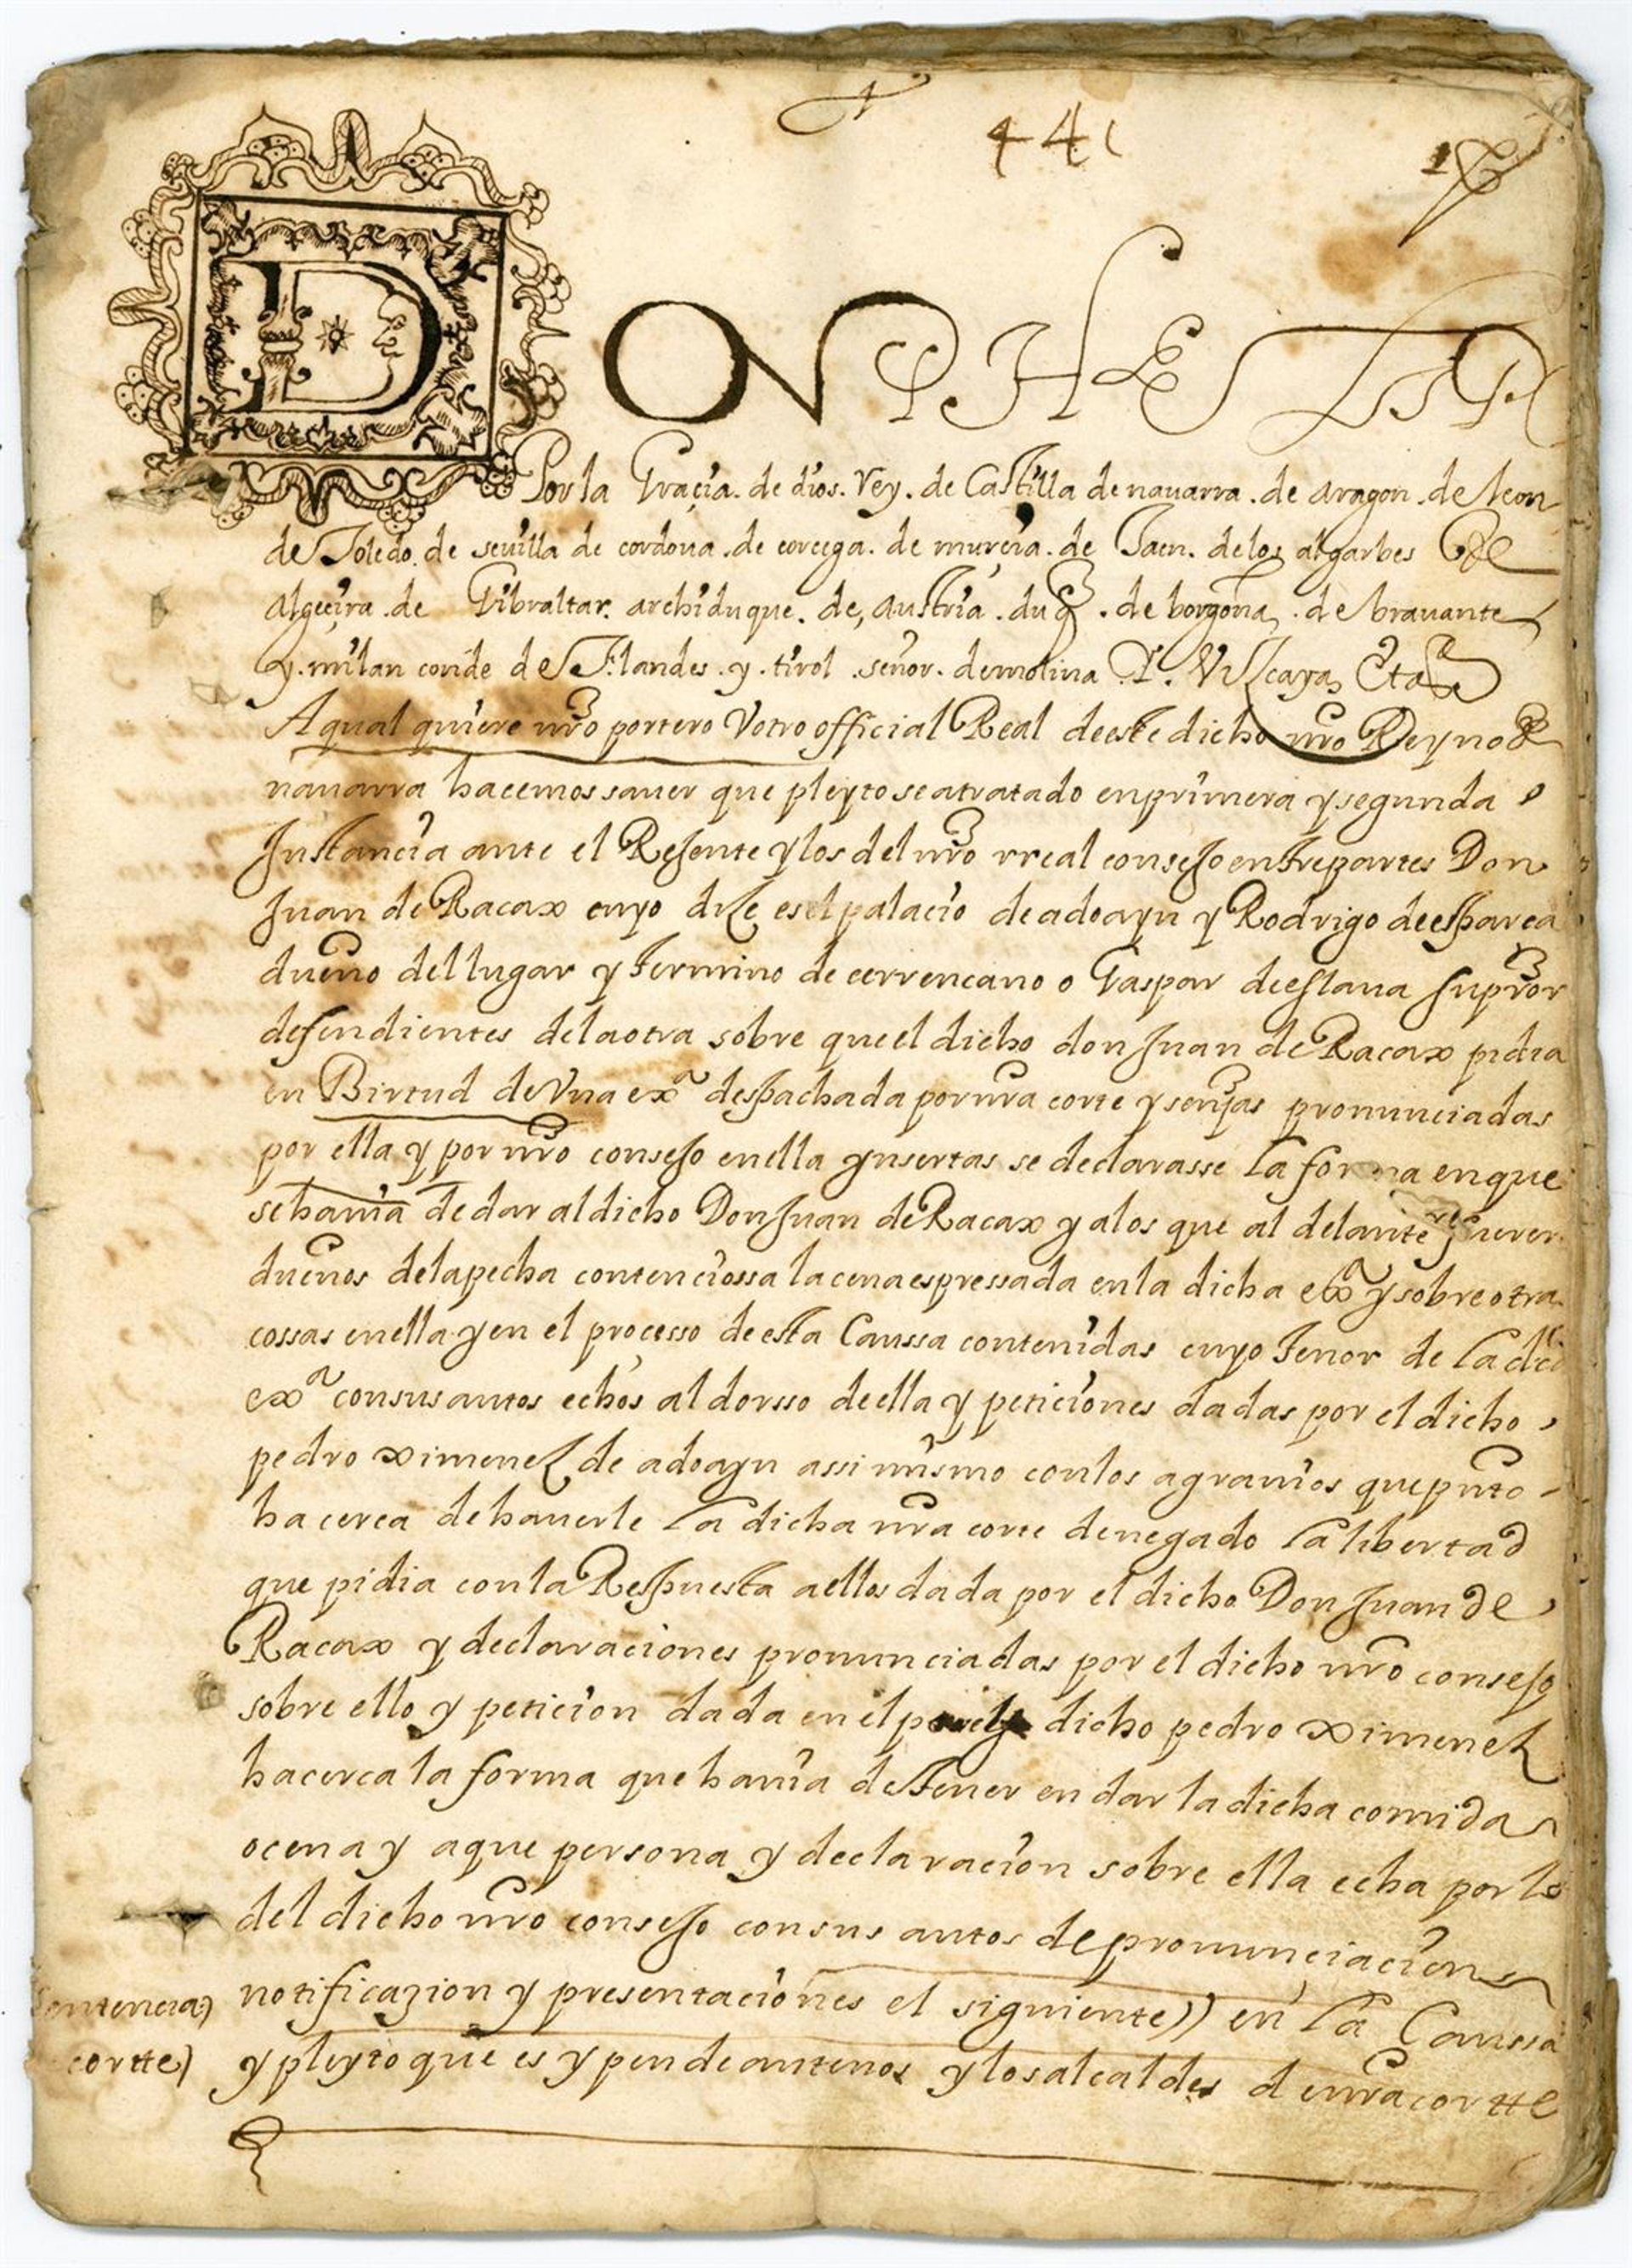 441
DON PHELIPE
Por la Graçia. de dios. Rey. de Castilla de nauarra. de aragon. de leon
de Toledo. de seuilla de cordoua. de corcega. de murçia. de Jaen. de los algarbes de
algeçira. de Gibraltar. archiduque. de, austria. duq. de borgoña. de brauante
y. milan conde de Flandes. y. tirol. señor. de molina Vizcaya, Eta
A qual quiere nro portero V otro official Real de este dicho nro Reyno de
nauarra hacemos sauer que pleyto se a tratado en primera y segunda
Instancia ante el Rejente y los del nro rreal consejo entre partes Don
Juan de Racax cuyo dize es el palacio de adoayn y Rodrigo de esparca
dueño del lugar y termino de cerrencano o Gaspar de eslaua su pror
defendientes de la otra sobre que el dicho don Juan de Racax pidia
en Birtud de Vna exa despachada por nra corte y senjas pronunciadas
por ella y por nro consejo en ella ynsertas se declarasse la forma en que
se hauia de dar al dicho Don Juan de Racax y a los que al delante
dueños de la pecha contenciossa la cena espressada en la dicha exa y sobre otra
cossas en ella y en el processo de esta Caussa contenidas cuyo tenor de la
exa con sus autos echos al dorsso de ella y peticiones dadas por el dicho
pedro ximenez de adoayn assi mismo con los agrauios que puso
hacerca de hauerle la dicha nra corte denegado la libertad
que pidia con la Respuesta a ellos dada por el dicho Don Juan de
Racax y declaraciones pronunciadas por el dicho nro consejo
sobre ello y peticion dada en el dicho pedro ximenez
hacerca la forma que hauia de tener en dar la dicha comida
o cena y a que persona y declaracion sobre ella echa por lo
del dicho nro consejo con sus autos de pronunciacion
notificazion y presentaciones el siguiente)) en la Caussa
y pleyto que es y pende ante nos y los alcaldes de nra cortte
sentencia)
cortte)